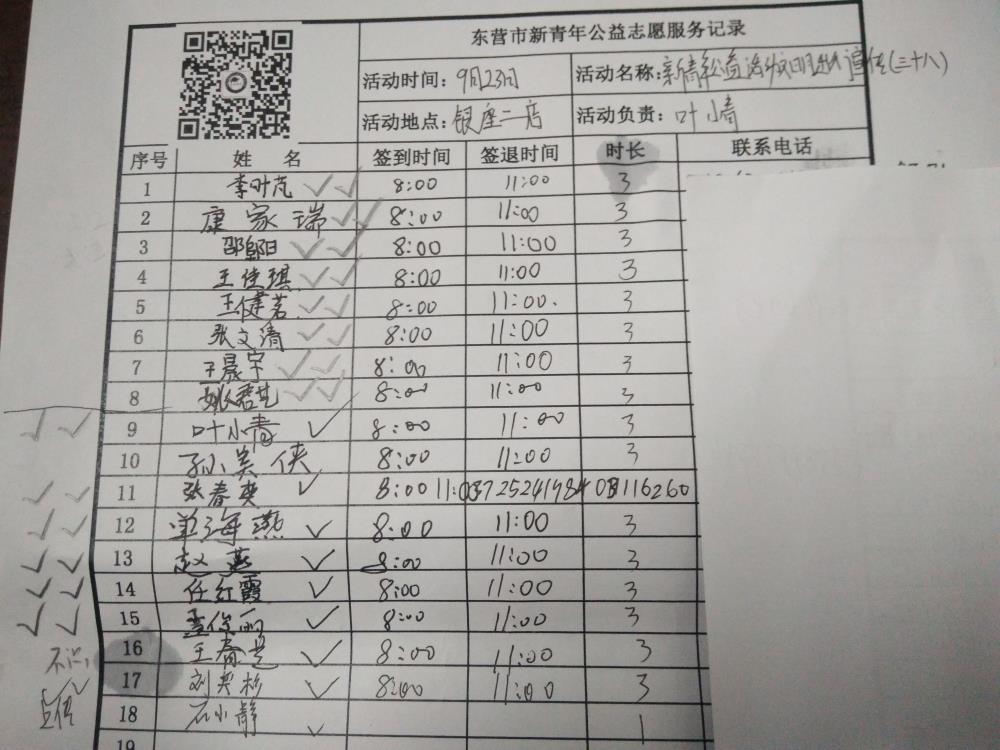 东营市新青年公益志愿服务记录
活动时间: 9月23日 活动名称: 新青年公益活动文明出行宣传(三十八)
活动地点: 银座二店 活动负责: 叶小青
序号 姓名 签到时间 签退时间 时长 联系电话
1 李叶芃 8:00 11:00 3
2 康家瑞 8:00 11:00 3
3 邵 8:00 11:00 3
4 王佳琪 8:00 11:00 3
5 王健茗 8:00 11:00. 3
6 张文清 8:00 11:00 3
7 王晨宇 8:00 11:00 3
8 8:00 11:00 3
9 叶小青 8:00 11:00 3
10 孙美侠 8:00 11:00 3
11 张春英 8:00
12 单海燕 8:00 11:00 3
13 赵燕 8:00 11:00 3
14 任红霞 8:00 11:00 3
15 8:00 11:00 3
16 王春 8:00 11:00 3
17 刘英杉 8:00 11:00 3
18 石小静 1
19